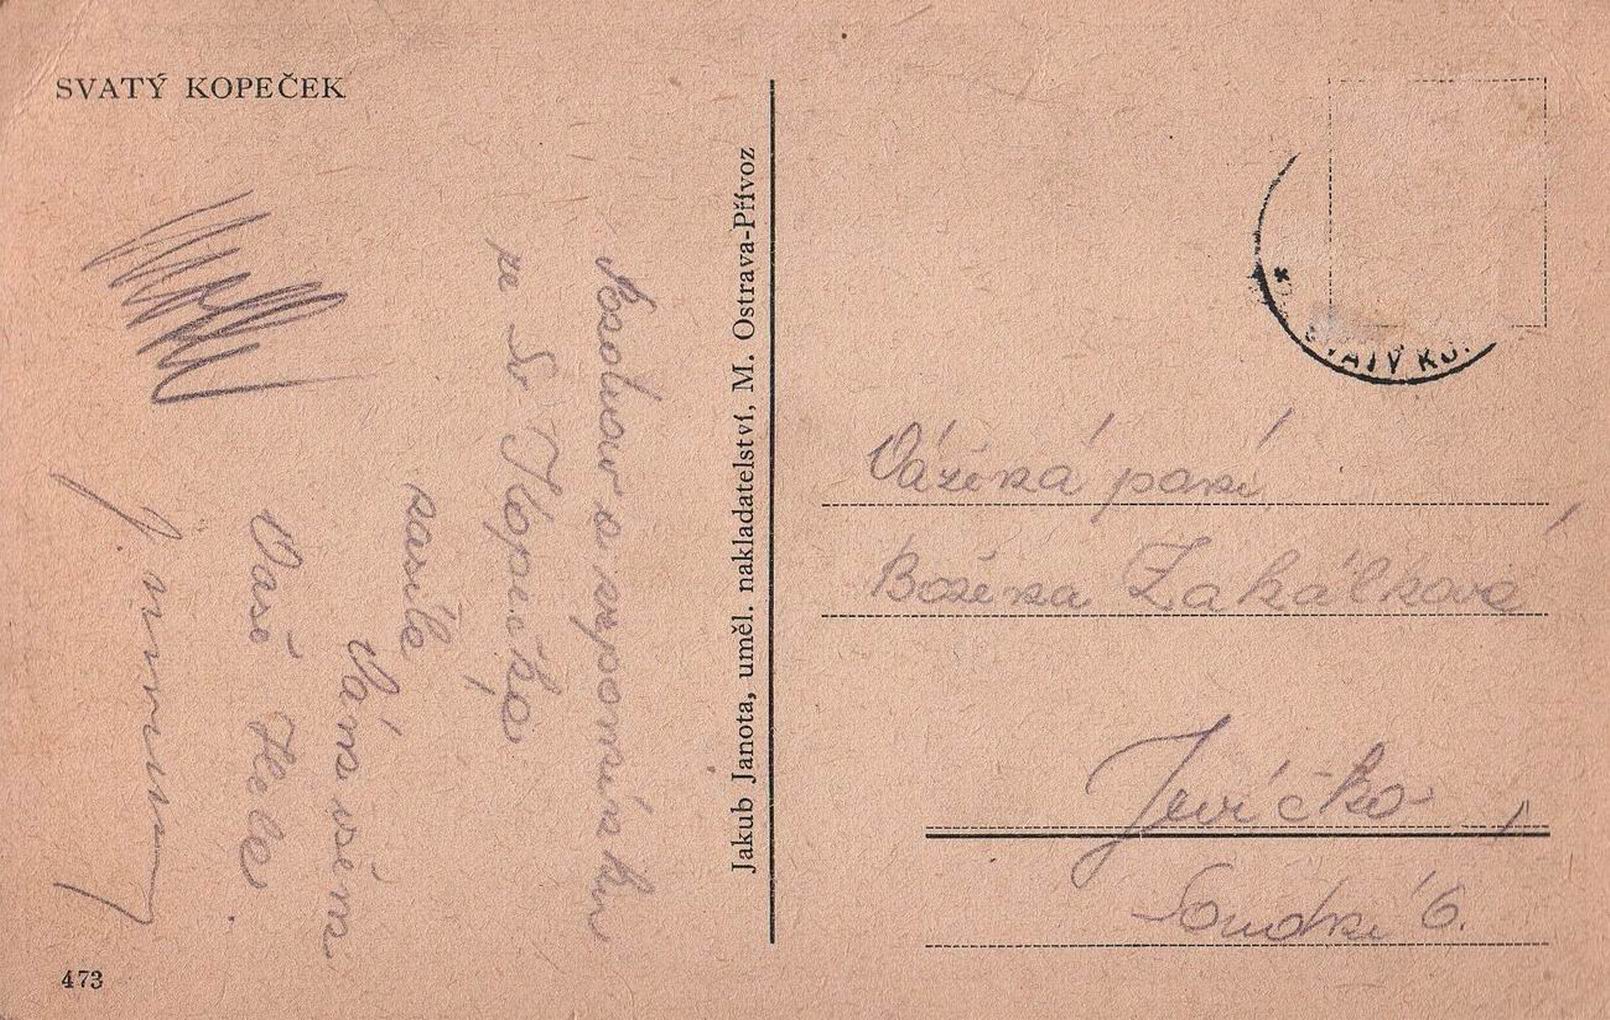 SVATÝ KOPEČEK
Pozdrav a vzpomínku
ze Sv Kopečka
zasíle
Vám všem
Vaše
Jakub Janota, uměl. nakladatelství, M. Ostrava-Přívoz
SVATÝ KO
Vážená paní
Božena Zahálková
Jevíčko
Soudní 6.
473